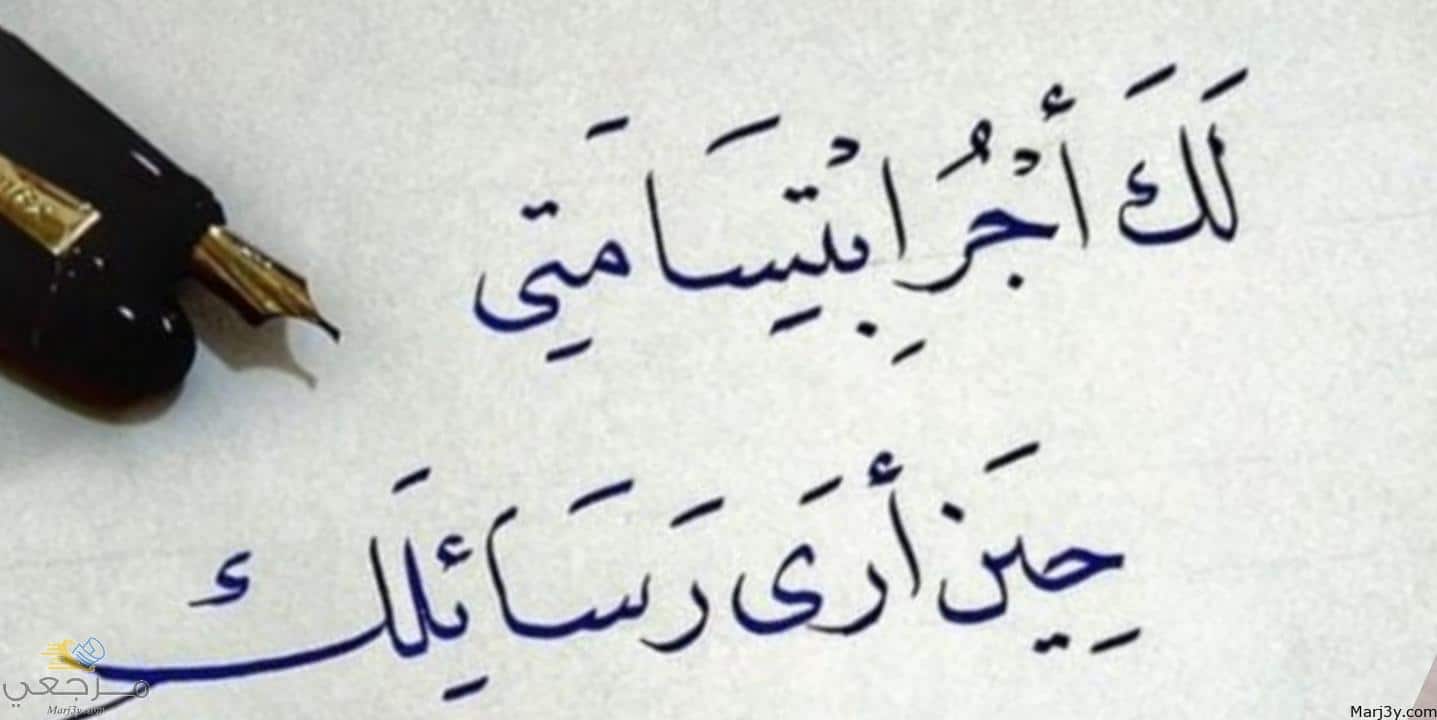 لَكَ أَجْرُ اِبْتِسَامَتِي
حِينَ أَرَى رَسَائِلَك
مرجعي
Marj3y.com
Marj3y.com